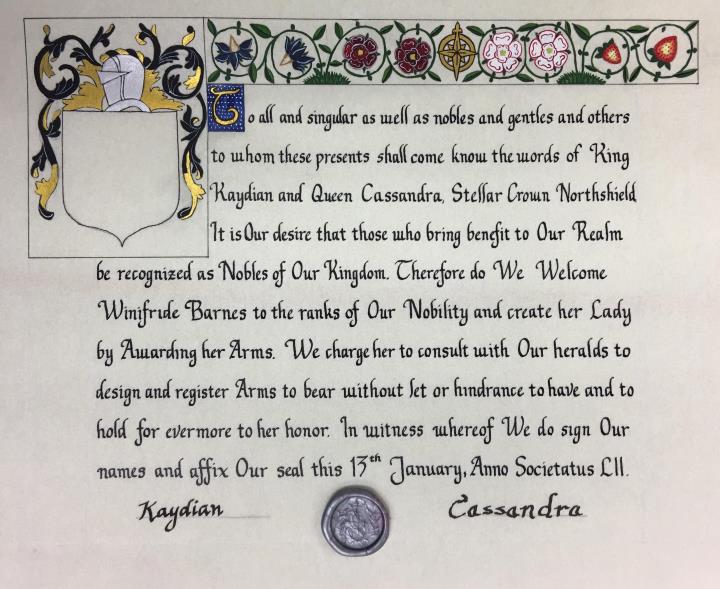 To all and singular as well as nobles and gentles and others
to whom these presents shall come know the words of King
Kaydian and Queen Cassandra, Stellar Crown Northshield
It is Our desire that those who bring benefit to Our Realm
be recognized as Nobles of Our Kingdom. Therefore do We Welcome
Winifride Barnes to the ranks of Our Nobility and create her Lady
by Awarding her Arms. We charge her to consult with Our heralds to
design and register Arms to bear without let or hindrance to have and to
hold for evermore to her honor. In witness whereof We do sign Our
names and affix Our seal this 13th January, Anno Societatus LII.
Kaydian Cassandra